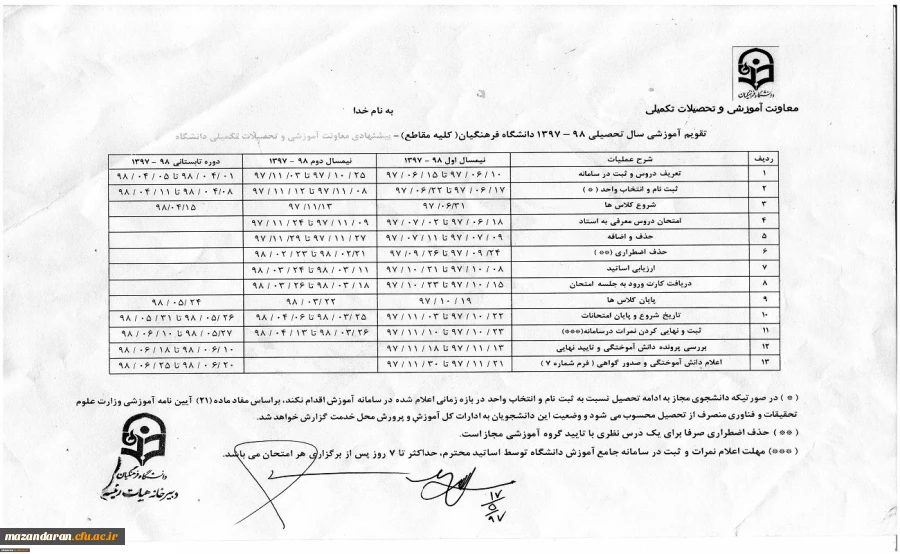 دانشگاه فرهنگیان
معاونت آموزشی و تحصیلات تکمیلی
به نام خدا
تقویم آموزشی سال تحصیلی ۹۸ – ۱۳۹۷ دانشگاه فرهنگیان( کلیه مقاطع) – پیشنهادی معاونت آموزشی و تحصیلات تکمیلی دانشگاه
ردیف شرح عملیات نیمسال اول ۹۸ - ۱۳۹۷ نیمسال دوم ۹۸ - ۱۳۹۷ دوره تابستانی ۹۸ - ۱۳۹۷
۱ تعریف دروس و ثبت در سامانه ۹۷/۰۶/۱۰ تا ۹۷/۰۶/۱۵ ۹۷/۱۰/۲۵ تا ۹۷/۱۱/۰۳ ۹۸/۰۴/۰۱ تا ۹۸/۰۴/۰۵
۲ ثبت نام و انتخاب واحد ( * ) ۹۷/۰۶/۱۷ تا ۹۷/۰۶/۲۲ ۹۷/۱۱/۰۸ تا ۹۷/۱۱/۱۲ ۹۸/۰۴/۰۸ تا ۹۸/۰۴/۱۱
۳ شروع کلاس ها ۹۷/۰۶/۳۱ ۹۷/۱۱/۱۳ ۹۸/۰۴/۱۵
۴ امتحان دروس معرفی به استاد ۹۷/۰۶/۱۸ تا ۹۷/۰۷/۰۲ ۹۷/۱۱/۰۹ تا ۹۷/۱۱/۲۴
۵ حذف و اضافه ۹۷/۰۷/۰۹ تا ۹۷/۰۷/۱۱ ۹۷/۱۱/۲۷ تا ۹۷/۱۱/۲۹
۶ حذف اضطراری ( ** ) ۹۷/۰۹/۲۴ تا ۹۷/۰۹/۲۶ ۹۸/۰۲/۲۱ تا ۹۸/۰۲/۲۳
۷ ارزیابی اساتید ۹۷/۱۰/۰۸ تا ۹۷/۱۰/۲۱ ۹۸/۰۳/۱۱ تا ۹۸/۰۳/۲۴
۸ دریافت کارت ورود به جلسه امتحان ۹۷/۱۰/۱۵ تا ۹۷/۱۰/۲۳ ۹۸/۰۳/۱۸ تا ۹۸/۰۳/۲۶
۹ پایان کلاس ها ۹۷/۱۰/۱۹ ۹۸/۰۳/۲۲ ۹۸/۰۵/۲۴
۱۰ تاریخ شروع و پایان امتحانات ۹۷/۱۰/۲۲ تا ۹۷/۱۱/۰۳ ۹۸/۰۳/۲۵ تا ۹۸/۰۴/۰۶ ۹۸/۰۵/۲۶ تا ۹۸/۰۵/۳۱
۱۱ ثبت و نهایی کردن نمرات درسامانه(***) ۹۷/۱۰/۲۳ تا ۹۷/۱۱/۱۰ ۹۸/۰۳/۲۶ تا ۹۸/۰۴/۱۳ ۹۸/۰۵/۲۷ تا ۹۸/۰۶/۱۰
۱۲ بررسی پرونده دانش آموختگی و تایید نهایی ۹۷/۱۱/۱۳ تا ۹۷/۱۱/۱۸ ۹۸/۰۶/۱۰ تا ۹۸/۰۶/۱۸
۱۳ اعلام دانش آموختگی و صدور گواهی ( فرم شماره ۷ ) ۹۷/۱۱/۲۱ تا ۹۷/۱۱/۳۰ ۹۸/۰۶/۲۰ تا ۹۸/۰۶/۲۵
( * ) در صورتیکه دانشجوی مجاز به ادامه تحصیل نسبت به ثبت نام و انتخاب واحد در بازه زمانی اعلام شده در سامانه آموزش اقدام نکند، براساس مفاد ماده (۲۱) آیین نامه آموزشی وزارت علوم
تحقیقات و فناوری منصرف از تحصیل محسوب می شود و وضعیت این دانشجویان به ادارات کل آموزش و پرورش محل خدمت گزارش خواهد شد.
( ** ) حذف اضطراری صرفا برای یک درس نظری با تایید گروه آموزشی مجاز است.
( *** ) مهلت اعلام نمرات و ثبت در سامانه جامع آموزش دانشگاه توسط اساتید محترم، حداکثر تا ۷ روز پس از برگزاری هر امتحان می باشد.
دانشگاه فرهنگیان
دبیرخانه هیات رئیسه
۱۷
۵
۹۷
mazandaran.cfu.ac.ir